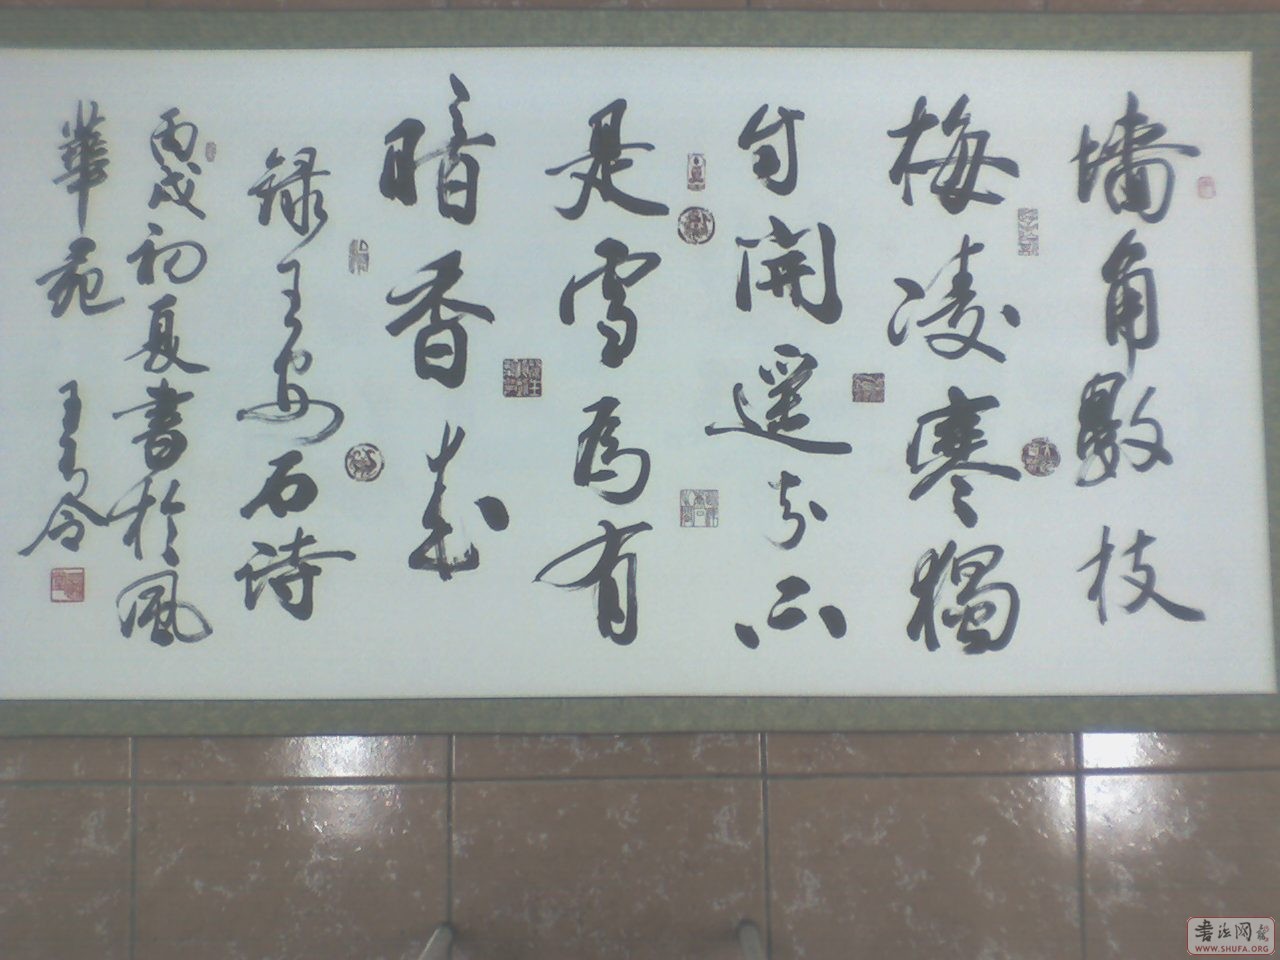 墙角数枝
梅凌寒獨
自開遥知不
是雪為有
暗香来
録王安石诗
丙戌初夏書於風
華苑
書法网
WWW.SHUFA.ORG